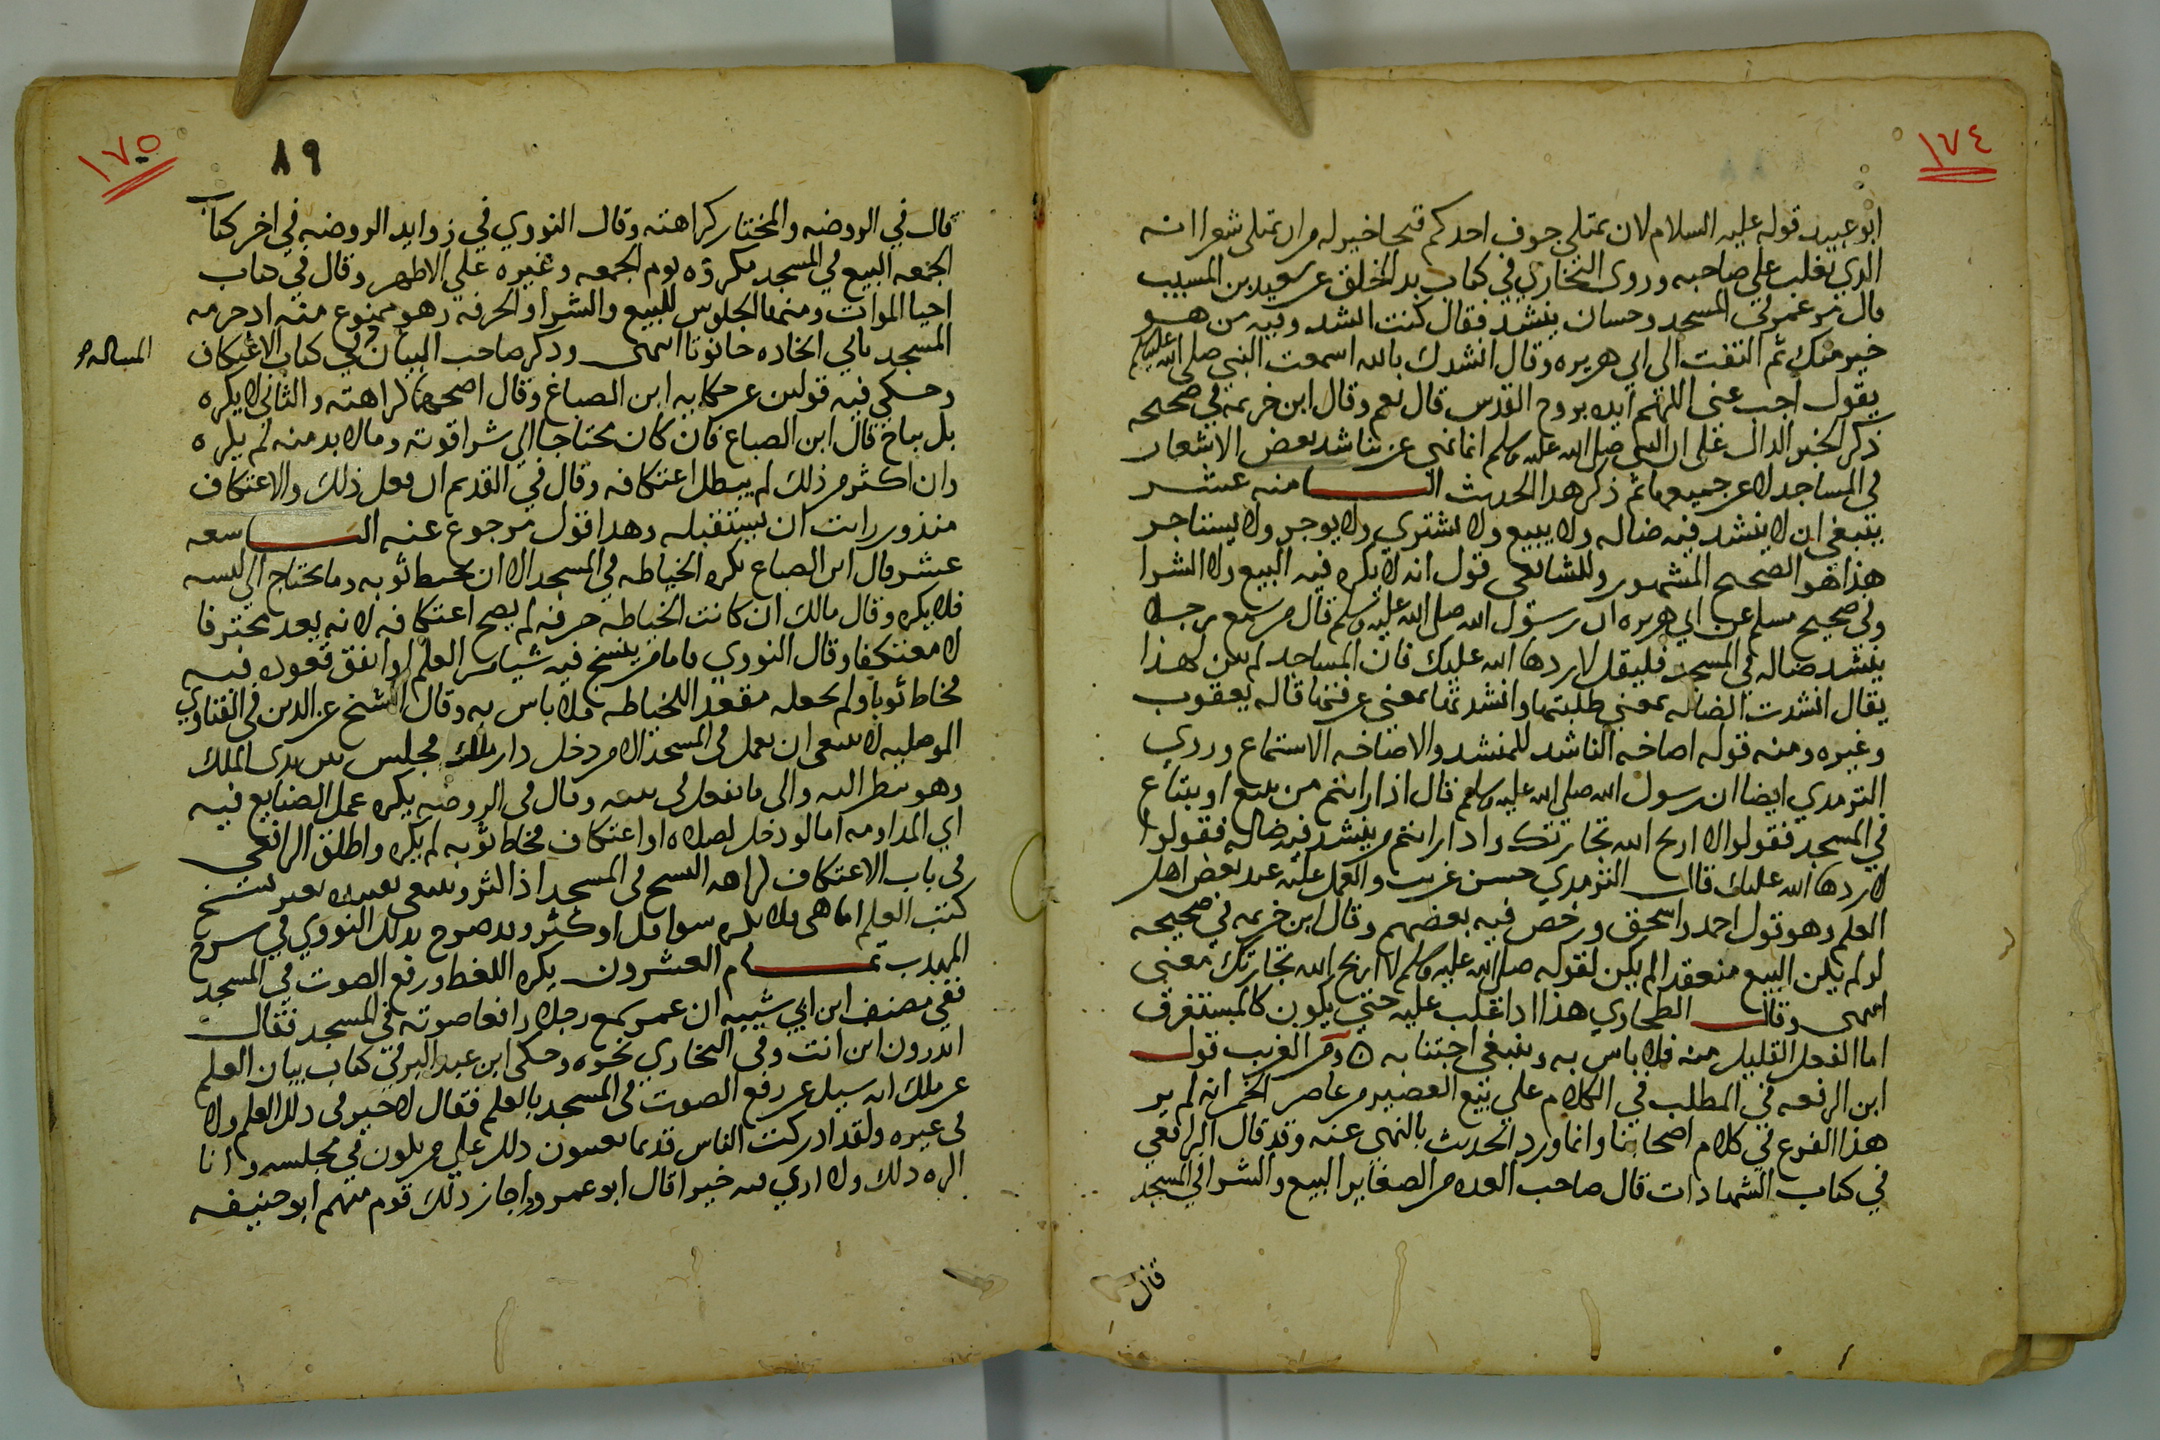 ١٧٤
ابو عبيد قوله عليه السلام لان يمتلي جوف احدكم قيحا خير له من ان يمتلي شعرا انه
الدي تغلب علي صاحبه وروى البخاري في كتاب بدا الخلق عن سعيد بن المسيب
قال مر عمر في المسجد وحسان ينشد فقال كنت انشد وفيه من هو
خير منك ثم التفت الي ابي هريره وقال انشدك بالله اسمعت النبي صلى الله عليه وسلم
يقول أجب عني اللهم ايده بروح القدس قال نعم وقال ابن خزيمه في صحيحه
ذكر الخبر الدال علي ان النبي صلى الله عليه وسلم انما نهي عن تناشد بعض الاشعار
في المساجد لا عن جميعها ثم ذكر هدا الحديث الثامنه عشر
ينبغي ان لا ينشد فيه ضاله ولا يبيع ولا يشتري ولا يوجر ولا يستاجر
هذا هو الصحيح المشهور وللشافعي قول انه لا يكره فيه البيع ولا الشرا
وفي صحيح مسلم عن ابي هريره ان رسول الله صلى الله عليه وسلم قال من سمع رجلا
ينشد ضاله في المسجد فليقل لا ردها الله عليك فان المساجد لم تبن لهذا
يقال انشدت الضاله بمعني طلبتها وانشدتها بمعني عرفتها قاله يعقوب
وغيره ومنه قوله اصاخه الناشد للمنشد والاصاخه الاستماع وروي
الترمدي ايضا ان رسول الله صلى الله عليه وسلم قال اذا رايتم من يبيع او يبتاع
في المسجد فقولوا لا اربح الله تجارتك وادا رايتم من ينشد فيه ضاله فقولوا
لا ردها الله عليك قال الترمدي حسن غريب والعمل عليه عند بعض اهل
العلم وهو قول احمد واسحق ورخص فيه بعضهم وقال ابن خزيمه في صحيحه
لو لم يكن البيع منعقدا لم يكن لقوله صلى الله عليه وسلم لا اربح الله تجارتك معني
انتهى وقال الطحاوي هذا ادا غلب عليه حتي يكون كالمستغرق
اما الفعل القليل منه فلا باس به وينبغي اجتنابه ٥ ومن الغريب قول
ابن الرفعه في المطلب في الكلام علي بيع العصير من عاصر الخمر انه لم ير
هذا الفرع في كلام اصحابنا وانما ورد الحديث بالنهي عنه وقد قال الرافعي
في كتاب الشهادات قال صاحب العده من الصغاير البيع والشرا في المسجد
قال
١٧٥
٨٩
قال في الروضه والمختار كراهته وقال النووي في زوايد الروضه في اخر كتاب
الجمعه البيع في المسجد مكروه يوم الجمعه وغيره علي الاظهر وقال في كتاب
احيا الموات ومنها الجلوس للبيع والشرا والحرفه وهو ممنوع منه اد حرمه
المسجد تابي اتخاده حانوتا انتهى وذكر صاحب البيان في كتاب الاعتكاف
المساله
وحكي فيه قولين عن حكايه ابن الصباغ وقال اصحهما كراهته والثاني لا يكره
بل يباح قال ابن الصباغ فان كان محتاجا الي شرا قوته وما لا بد منه لم يكره
وان اكثر من ذلك لم يبطل اعتكافه وقال في القديم ان فعل ذلك والاعتكاف
منذور رايت ان يستقبله وهدا قول مرجوع عنه التاسعه
عشر قال ابن الصباغ يكره الخياطه في المسجد الا ان يخيط ثوبه وما يحتاج الي لبسه
فلا يكره وقال مالك ان كانت الخياطه حرفه لم يصح اعتكافه لانه يعد محترفا
لا معتكفا وقال النووي فاما من ينسخ فيه شيا من العلم او اتفق قعوده فيه
فخاط ثوبا ولم يجعله مقعدا للخياطه فلا باس به وقال الشيخ عز الدين في الفتاوي
الموصليه لا ينبغي ان يعمل في المسجد الا من دخل دار ملك مجلس بين يدي الملك
وهو ينظر اليه والى ما يفعل في بيته وقال في الروضه يكره عمل الصنايع فيه
اي المداومه اما لو دخل لصلاه او اعتكاف فخاط ثوبه لم يكره واطلق الرافعي
في باب الاعتكاف كراهه النسخ في المسجد اذا اكثر وينبغي تقييده بغير نسخ
كتب العلم اما هي فلا يكره سوا قل او كثر وبه صرح بدلك النووي في شرح
المهدب تمام العشرون يكره اللغط ورفع الصوت في المسجد
ففي مصنف ابن ابي شيبه ان عمر سمع رجلا رافعا صوته في المسجد فقال
اتدرون اين انت وفي البخاري نحوه وحكى ابن عبد البر في كتاب بيان العلم
عن ملك انه سيل عن رفع الصوت في المسجد بالعلم فقال لا خير في ذلك العلم ولا
في غيره ولقد ادركت الناس قديما يعيبون دلك علي من يكون في مجلسه وانا
اكره دلك ولا اري فيه خيرا قال ابو عمر واجاز ذلك قوم منهم ابو حنيفه